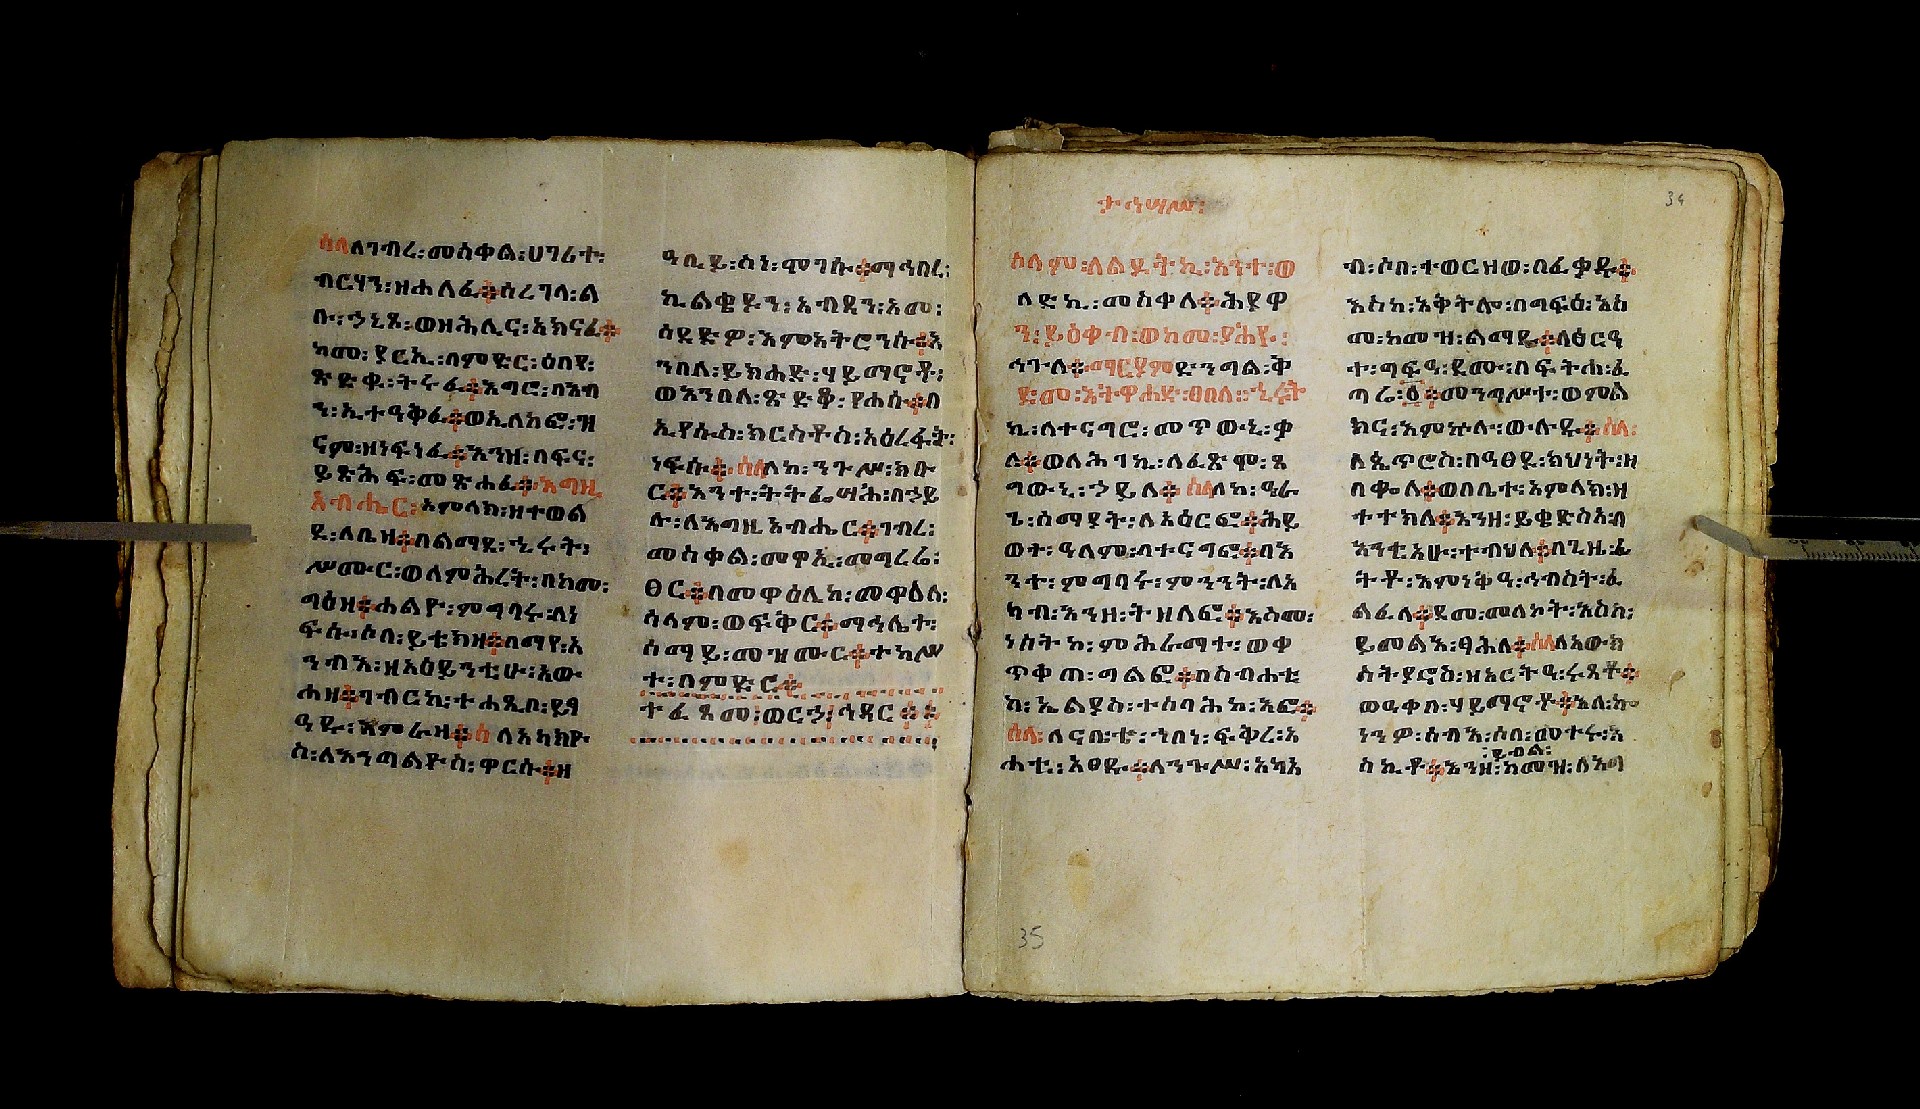 ሰላለገብረ፡መስቀል፡ሀገሪተ፡
ብርሃን፡ዘሐለፈ፨ሰረገላ፡ል
ቡ፡ኀኒጾ፡ወዘሕሊና፡አክናፈ፨
ከመ፡ያርኢ፡በምድር፡ዕበየ፡
ጽድቁ፡ትሩፈ፨እግሮ፡በእብ
ን፡ኢተዓቅፈ፨ወኢለከፎ፡ዝ
ናም፡ዘነፍነፈ፨እንዘ፡በፍና፡
ይጽሕፍ፡መጽሐፈ፨እግዚ
አብሔር፡አምላክ፡ዘተወል
ደ፡ለቤዛ፨በልማደ፡ኂሩት፡
ሥሙር፡ወለምሕረት፡በከመ፡
ግዕዛ፨ሐልዮ፡ምግባሩ፡ለነ
ፍሱ፡ሶበ፡ይቴክዛ፨በማየ፡አ
ንብዕ፡ዘአዕይንቲሁ፡አው
ሐዛ፨ገብርኪ፡ተሐጺቦ፡ይጓ
ዓዱ፡እምራዛ፨ሰለአካክዮ
ስ፡ለእንጣልዮስ፡ዋርሱ፨ዘ
ዓቢይ፡ስነ፡ሞገሱ፨ማኅበረ፡
ኪልቄዶን፡አብዳን፡አመ፡
ሰደድዎ፡እምአትሮንሱ፨እ
ንበለ፡ይክሐድ፡ሃይማኖቶ፡
ወእንበለ፡ጽድቅ፡የሐሱ፨በ
ኢየሱስ፡ክርስቶስ፡አዕረፋት፡
ነፍሱ፨ሰላለከ፡ንጉሥ፡ክቡ
ር፨አንተ፡ትትፌሣሕ፡በኀይ
ሉ፡ለእግዚአብሔር፨ገብረ፡
መስቀል፡መዋኢ፡መግረሬ፡
ፀር፨በመዋዕሊከ፡መዋዕለ፡
ሰላም፡ወፍቅር፨ማኅሌተ፡
ሰማይ፡መዝሙር፨ተከሥ
ተ፡በምድር፨
ተፈጸመ፡ወርኀ፡ኅዳር፨
ታኅሣሥ፡
ሰላም፡ለልደትኪ፡አንተ፡ወ
ለድኪ፡መስቀለ፨ሕይዋ
ን፡ይዕቀብ፡ወከመ፡ያሕዩ፡
ኅጉለ፨ማርያምድንግል፡ቅ
ድመ፡አትዋሐድ፡ፀበለ፡ኂሩት
ኪ፡ለተናግሮ፡መጥውኒ፡ቃ
ለ፨ወለሕገኪ፡ለፈጽሞ፡ጸ
ግውኒ፡ኀይለ፨ሰላለከ፡ዔራ
ጊ፡ሰማያት፡ለአዕርፎ፨ሕይ
ወት፡ዓለም፡ለተናግፎ፨በእ
ንተ፡ምግባሩ፡ምንንት፡ለአ
ካብ፡እንዘ፡ትዘለፎ፨እስመ፡
ነስትከ፡ምሕራማተ፡ወቀ
ጥቀጠ፡ግልፎ፨በስብሐቲ
ከ፡ኤልያስ፡ተሰባሕከ፡አፎ፨
ሰላ፡ለናቡቴ፡ኀበነ፡ፍቅረ፡አ
ሐቲ፡አፀዱ፨ለንጉሥ፡አካአ
ብ፡ሶበ፡ተወርዝወ፡በፈቃዱ፨
እስከ፡አቅትሎ፡በግፍዕ፡እስ
መ፡ከመዝ፡ልማዱ፨ለፅርዓ
ተ፡ግፍዓ፡ደሙ፡በፍትሐ፡ፈ
ጣሪ፡ዕ፨መንግሥተ፡ወምል
ክና፡እምኵሉ፡ውሉዱ፨ሰላ፡
ለጴጥሮስ፡በዓፀደ፡ክህነት፡ዘ
በቍለ፨ወበቤተ፡አምላክ፡ዘ
ተተክለ፨እንዘ፡ይቄድስአበ
እንቲአሁ፡ተብህለ፨በጊዜ፡ፊ
ትቶ፡እምነቅዓ፡ኅብስት፡ፈ
ልፈለ፨ደመ፡መለኮት፡እስከ፡
ይመልእ፡ፃሕለ፨ሰላለአውክ
ስትያኖስ፡ዘእርትዓ፡ሩጸቶ፨
ወዐቀበ፡ሃይማኖቶ፨እለ፡ኮ
ነንዎ፡ሰብእ፡ሶበ፡መተሩ፡እ
ይብል፡
ስኪቶ፨እንዘ፡ከመዝ፡ለእግ
34
35